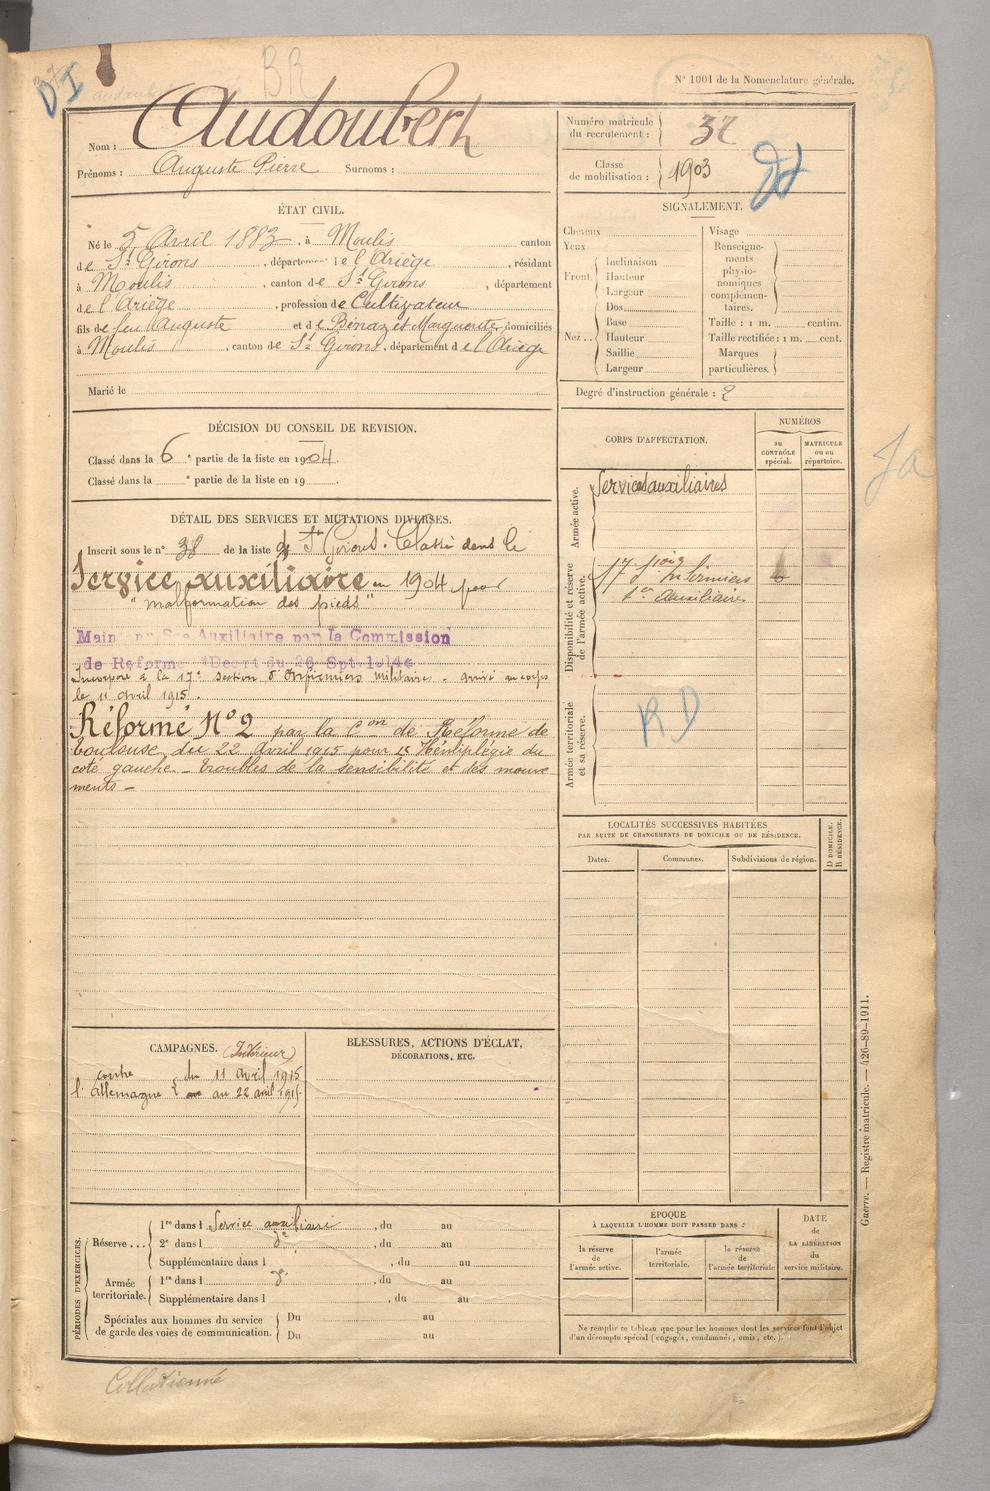 DI
BR
N° 1001 de la Nomenclature générale.
Nom : Audoubert
Prénoms : Auguste Pierre Surnoms :
Numéro matricule du recrutement : 37
Classe de mobilisation : 1903
ÉTAT CIVIL.
Né le 5 Avril 1883, à Moulis canton
de St Girons, département de l'Ariège, résidant
à Moulis, canton de St Girons, département
de l'Ariège, profession de Cultivateur
fils de feu Auguste et de Bénazet Marguerite, domiciliés
à Moulis, canton de St Girons, département de l'Ariège
Marié le
SIGNALEMENT.
Cheveux
Yeux
Front. Inclinaison
Hauteur
Largeur
Nez.. Dos
Base
Hauteur
Saillie
Largeur
Visage
Renseignements physionomiques complémentaires.
Taille : 1 m. centim.
Taille rectifiée : 1 m. cent.
Marques particulières.
Degré d'instruction générale : 2
DÉCISION DU CONSEIL DE REVISION.
Classé dans la 6e partie de la liste en 1904.
Classé dans la e partie de la liste en 19 .
DÉTAIL DES SERVICES ET MUTATIONS DIVERSES.
Inscrit sous le n° 38 de la liste de St Girons. Classé dans le
Service auxiliaire en 1904 pour
"malformation des pieds"
Maintenu Sce Auxiliaire par la Commission
de Reforme Décret du 26 Spt 1914
Incorporé à la 17e Section d'Infirmiers Militaires. arrivé au corps
le 11 avril 1915.
Réformé N° 2 par la Con de Réforme de
Toulouse du 22 Avril 1915 pour Hémiplégie du
coté gauche - troubles de la sensibilité et des mouve
ments -
CORPS D'AFFECTATION.
NUMÉROS
au CONTRÔLE spécial.
MATRICULE ou au répertoire.
Armée active.
Services auxiliaires
Disponibilité et réserve de l'armée active.
17 Infirmiers
Auxiliaire
Armée territoriale et sa réserve.
RD
LOCALITÉS SUCCESSIVES HABITÉES
PAR SUITE DE CHANGEMENTS DE DOMICILE OU DE RÉSIDENCE.
D DOMICILE. R RÉSIDENCE.
Dates. Communes. Subdivisions de région.
CAMPAGNES. (Intérieur)
contre l'Allemagne
du 11 Avril 1915
au 22 avril 1915.
BLESSURES, ACTIONS D'ÉCLAT,
DÉCORATIONS, ETC.
PÉRIODES D'EXERCICES.
Réserve... 1re dans l Service auxiliaire, du au
2e dans l do, du au
Supplémentaire dans l , du au
Armée territoriale. 1re dans l do, du au
Supplémentaire dans l , du au
Spéciales aux hommes du service de garde des voies de communication.
Du au
Du au
ÉPOQUE
À LAQUELLE L'HOMME DOIT PASSER DANS :
la réserve de l'armée active.
l'armée territoriale.
la réserve de l'armée territoriale
DATE DE LA LIBÉRATION du service militaire.
Ne remplir ce tableau que pour les hommes dont les services font l'objet
d'un décompte spécial (engagés, condamnés, omis, etc.).
Guerre. — Registre matricule. — 426-89-1911.
Collationné